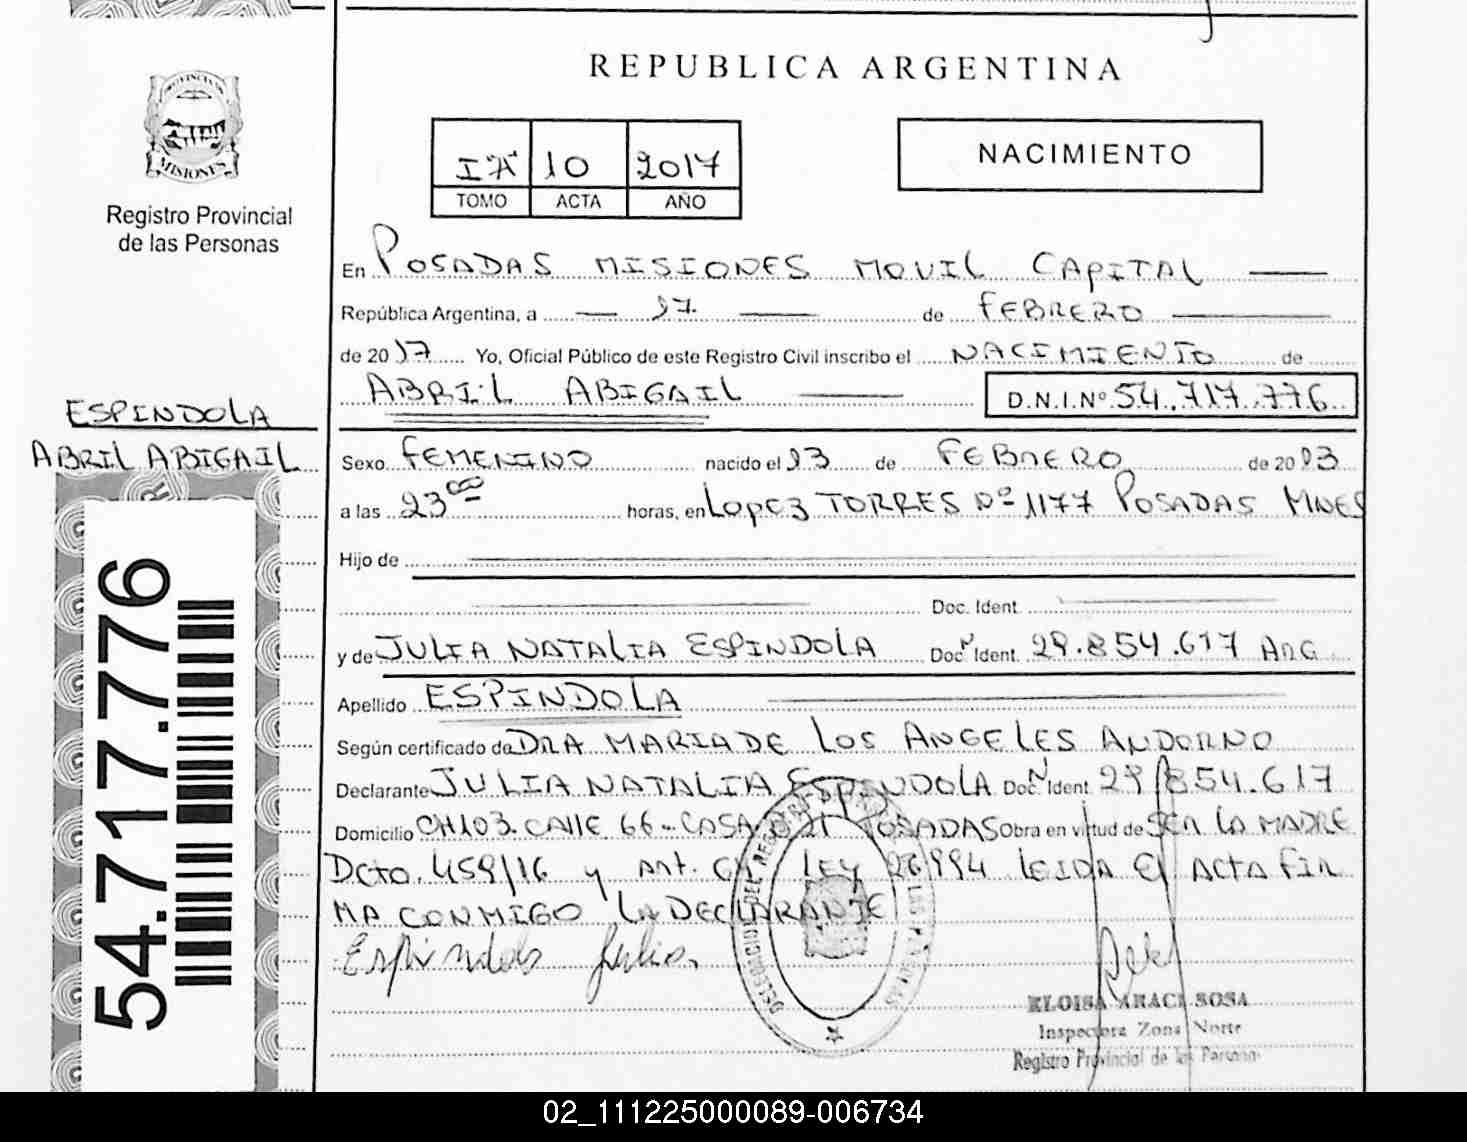 REPUBLICA ARGENTINA
PROVINCIA
MISIONES
Registro Provincial
de las Personas
IA 10 2017
TOMO ACTA AÑO
NACIMIENTO
En POSADAS MISIONES MOVIL CAPITAL
República Argentina, a 17 de FEBRERO
de 2017 Yo, Oficial Público de este Registro Civil inscribo el NACIMIENTO de
ABRIL ABIGAIL D.N.I.Nº 54.717.776
ESPINDOLA
ABRIL ABIGAIL
Sexo FEMENINO nacido el 13 de FEBRERO de 2013
a las 23 horas, en LOPEZ TORRES Nº 1177 POSADAS MNES
Hijo de
Doc. Ident.
y de JULIA NATALIA ESPINDOLA Doc. Ident. 29.854.617 ARG
Apellido ESPINDOLA
Según certificado de DRA MARIA DE LOS ANGELES ANDORNO
Declarante JULIA NATALIA ESPINDOLA Doc. Ident. 29.854.617
Domicilio CH103. CALLE 66 - CASA POSADAS Obra en virtud de SER LA MADRE
Dcto. 459/16 y Art. LEY 26994 LEIDA El ACTA FIR
MA CONMIGO LA DECLARANTE
Espindola Julia
ELOISA ARACI SOSA
Inspectora Zona Norte
Registro Provincial de las Personas
54.717.776
02_111225000089-006734